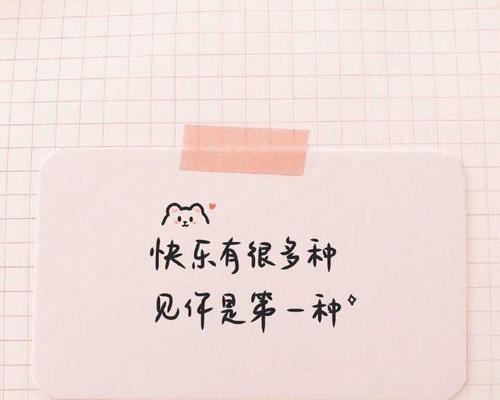 快乐有很多种
见你是第一种